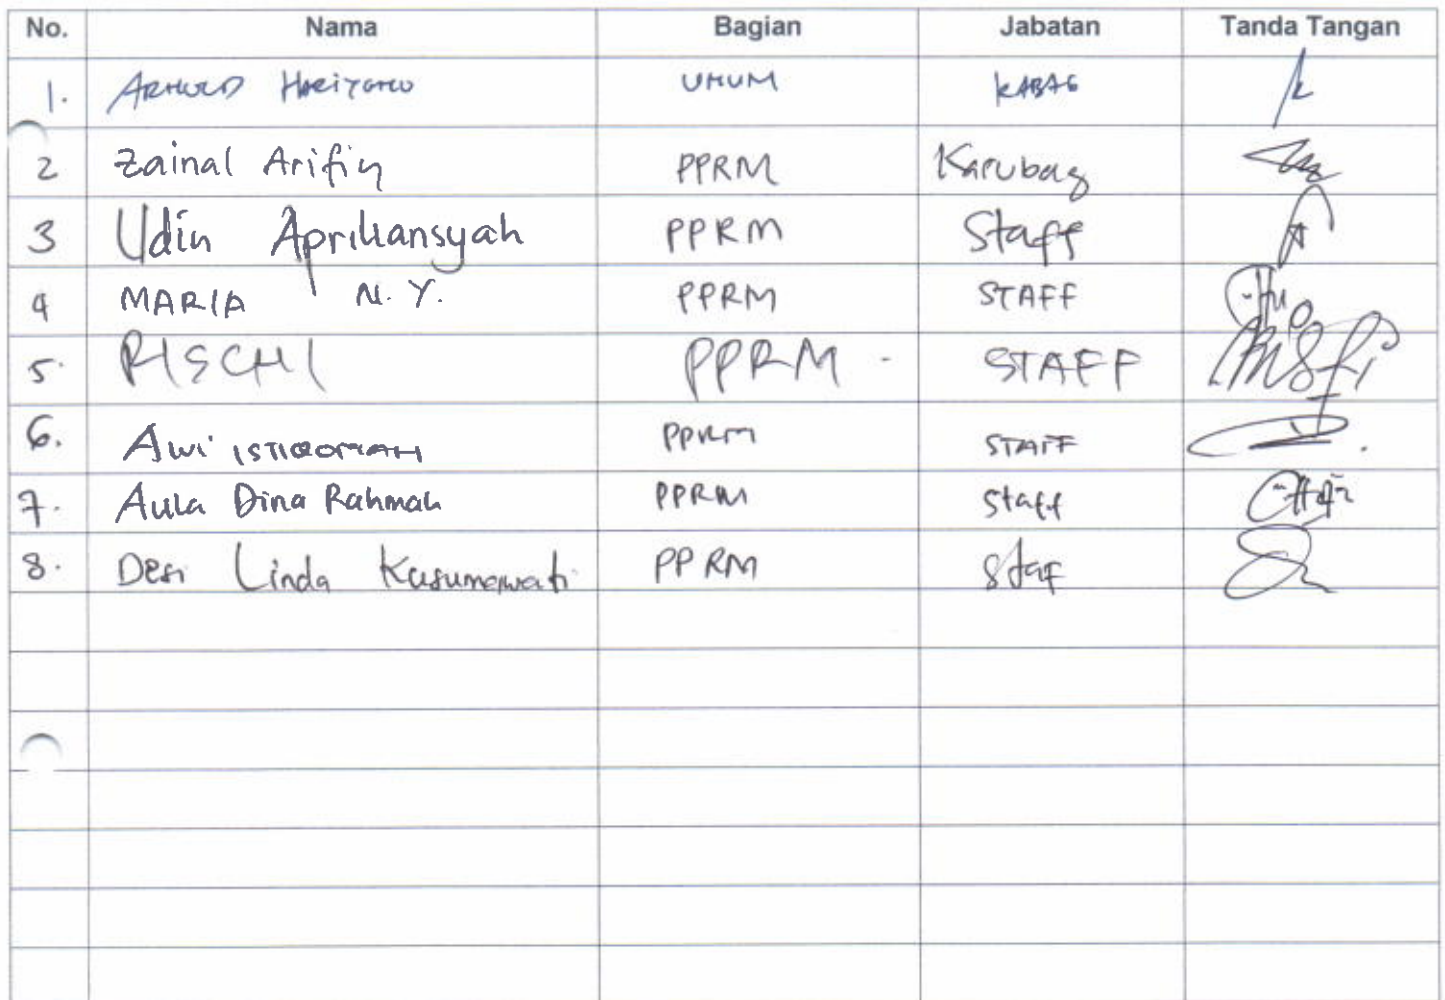 No. Nama Bagian Jabatan Tanda Tangan
1. ARNOLD HARIYONO UMUM KABAG
2 Zainal Arifin PPRM Karubag
3 Udin Apriliansyah PPRM Staff
4 MARIA N. Y. PPRM STAFF
5. RISCHI PPRM - STAFF
6. Awi ISTIQOMAH PPRM STAFF
7. Aula Dina Rahmah PPRM Staff
8. Desi Linda Kusumawati PPRM Staf